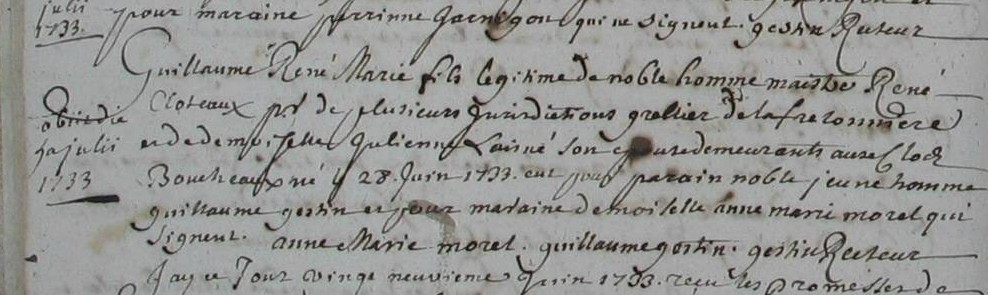 julii
1733.
pour maraine perrinne Jarnigon qui ne signent. gestin Recteur
Guillaume René Marie fils legitime de noble homme maistre René
Cloteaux pr de plusieurs Jurisdictions greffier de la fresonniere
obiit die
julii
1733
et de demoiselle Julienne Laisné son epouse demeurants au
Boucheaux né le 28. Juin 1733. eut pour parain noble jeune homme
guillaume gestin et pour maraine demoiselle anne marie morel qui
signent. anne Marie morel. guillaume gestin. gestin Recteur
Jay ce Jour vingt neuvieme Juin 1733. reçu les promesses de